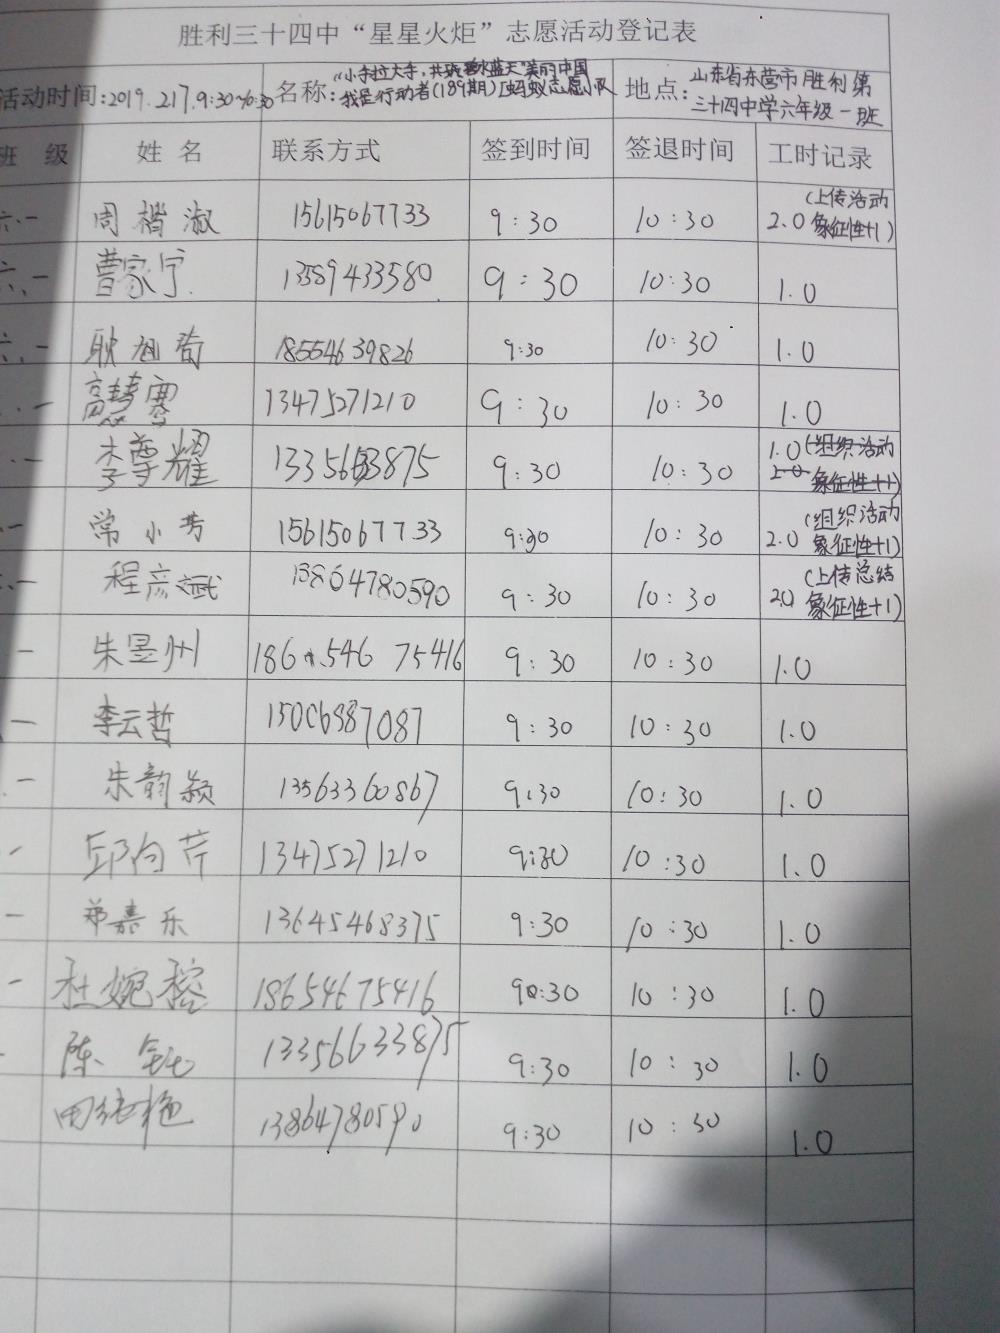 胜利三十四中“星星火炬”志愿活动登记表
活动时间:2019.2.17.9:30~10:30 名称:“小手拉大手,共筑碧水蓝天”美丽中国 我是行动者(189期)[蚂蚁志愿小队 地点:山东省东营市胜利第三十四中学六年级一班
班 级 姓 名 联系方式 签到时间 签退时间 工时记录
六.一 周楷淑 15615067733 9:30 10:30 2.0(上传活动象征性+1)
六.一 曹家宁 13589433580 9:30 10:30 1.0
六.一 耿旭 18554639826 9:30 10:30 1.0
一 高慧雯 13475271210 9:30 10:30 1.0
一 李尊耀 9:30 10:30 1.0
一 常小芳 15615067733 9:30 10:30 2.0(组织活动象征性+1)
一 程彦斌 13864780590 9:30 10:30 2.0(上传总结象征性+1)
一 朱昱州 186 546 75416 9:30 10:30 1.0
一 李云哲 15006987087 9:30 10:30 1.0
一 朱韵颖 13563360867 9:30 10:30 1.0
一 邱向芹 13475271210 9:30 10:30 1.0
一 郑嘉乐 13645468375 9:30 10:30 1.0
一 杜婉榕 18654675416 9:30 10:30 1.0
陈 13356633875 9:30 10:30 1.0
田 艳 13864780590 9:30 10:30 1.0